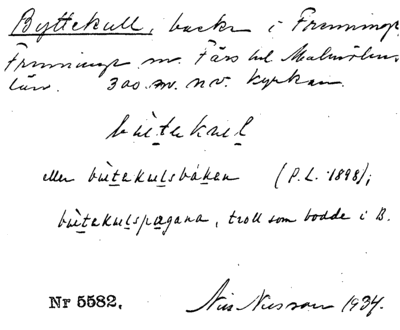 Byttekull, backe i Frenninge,
Frenninge sn. Färs hd Malmöhus
län. 300 m. nv. kyrkan.
bùtakul
eller bùtakulsbákan (P.L. 1898);
bùtakulspagana, troll som bodde i B.
Nr 5582.
Nils Nilsson 1934.